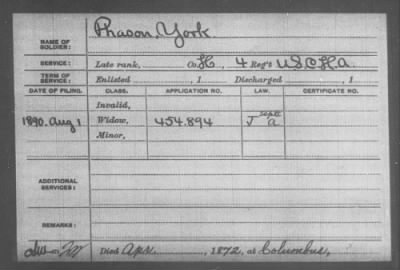 NAME OF SOLDIER: Phason, York
SERVICE: Late rank, Co. H, 4 Reg't U.S.C.H.A.
TERM OF SERVICE: Enlisted , 1 Discharged , 1
DATE OF FILING. CLASS. APPLICATION NO. LAW. CERTIFICATE NO.
Invalid,
1890. Aug 1 Widow, 454.894 J
Minor,
ADDITIONAL SERVICES:
REMARKS:
Died Apr. , 1872, at Columbus,